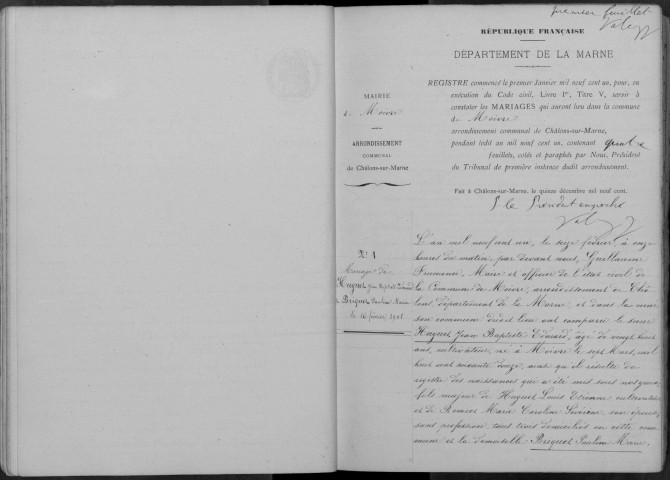 premier feuillet
RÉPUBLIQUE FRANÇAISE
DÉPARTEMENT DE LA MARNE
MAIRIE
de Moivre
ARRONDISSEMENT
COMMUNAL
de Châlons-sur-Marne
REGISTRE commencé le premier Janvier mil neuf cent un, pour, en
exécution du Code civil, Livre Ier, Titre V, servir à
constater les MARIAGES qui auront lieu dans la commune
de Moivre
arrondissement communal de Châlons-sur-Marne,
pendant ledit an mil neuf cent un, contenant quatre
feuillets, cotés et paraphés par Nous, Président
du Tribunal de première instance dudit arrondissement.
Fait à Châlons-sur-Marne, le quinze décembre mil neuf cent.
P le Président empêché
N° 1
Mariage de
Huguet Jean Baptiste Edouard
& Briquet Pauline Marie
le 16 février 1901
L'an mil neuf cent un, le seize février, à onze
heures du matin, par devant nous, Guillaume
Maire et officier de l'état civil de
la Commune de Moivre, arrondissement de Châ
lons, département de la Marne, et dans la mai
son commune dudit lieu ont comparu le sieur
Huguet Jean Baptiste Edouard, âgé de vingt huit
ans, cultivateur, né à Moivre le sept Mars, mil
huit cent soixante douze, ainsi qu'il résulte du
registre des naissances qui a été mis sous nos yeux,
fils majeur de Huguet Louis Etienne cultivateur
et de Marie Caroline son épouse,
sans profession, tous trois domiciliés en cette com
mune et la demoiselle Briquet Pauline Marie,